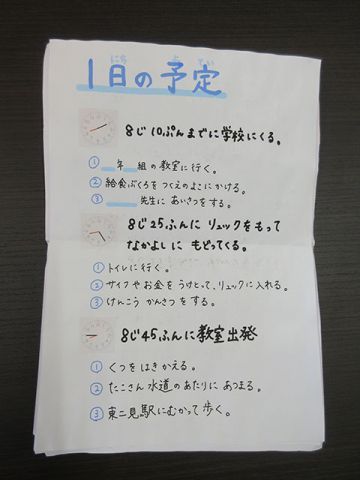 1日の予定
にち よ てい
8じ10ぷんまでに学校にくる。
① 年 組の教室に行く。
② 給食ぶくろをつくえのよこにかける。
③ 先生にあいさつをする。
8じ25ふんに リュックをもって
なかよしに もどってくる。
① トイレに行く。
② サイフやお金をうけとって、リュックに入れる。
③ けんこう かんさつをする。
8じ45ふんに教室出発
① くつをはきかえる。
② たこさん水道のあたりにあつまる。
③ 東二見駅にむかって歩く。